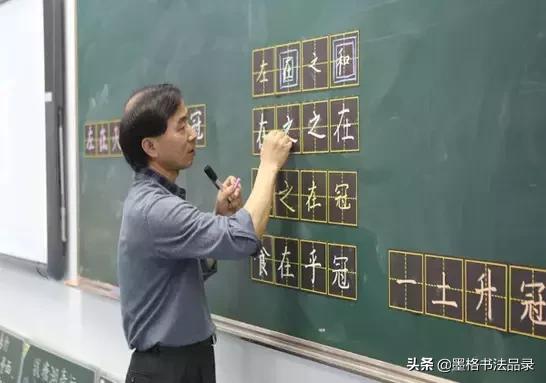 左在之和
在之之在
之在冠
食在乎冠
左在
冠
一土升冠
头条 @墨格书法品录